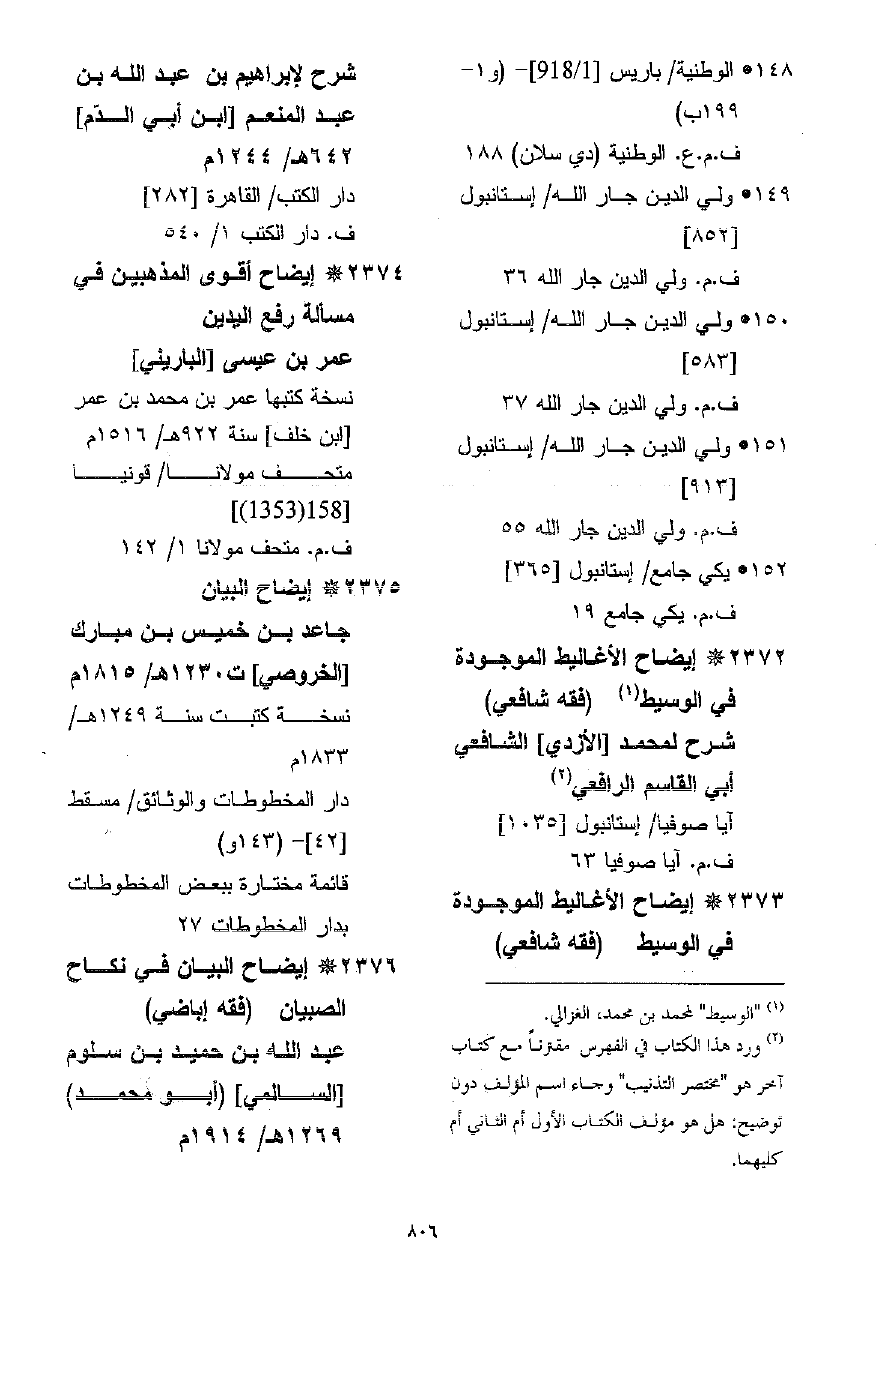 ١٤٨* الوطنية/ باريس [918/1]- (و١-
١٩٩ب)
ف.م.ع. الوطنية (دي سلان) ١٨٨
١٤٩* ولي الدين جار الله/ إستانبول
[٨٥٢]
ف.م. ولي الدين جار الله ٣٦
١٥٠* ولي الدين جار الله/ إستانبول
[٥٨٣]
ف.م. ولي الدين جار الله ٣٧
١٥١* ولي الدين جار الله/ إستانبول
[٩١٣]
ف.م. ولي الدين جار الله ٥٥
١٥٢* يكي جامع/ إستانبول [٣٦٥]
ف.م. يكي جامع ١٩
٢٣٧٢* إيضاح الأغاليط الموجودة
في الوسيط(١) (فقه شافعي)
شرح لمحمد [الأزدي] الشافعي
أبي القاسم الرافعي(٢)
آيا صوفيا/ إستانبول [١٠٣٥]
ف.م. آيا صوفيا ٦٣
٢٣٧٣* إيضاح الأغاليط الموجودة
في الوسيط (فقه شافعي)
(١) "الوسيط" لمحمد بن محمد، الغزالي.
(٢) ورد هذا الكتاب في الفهرس مقترناً مع كتاب
آخر هو "مختصر التذنيب" وجاء اسم المؤلف دون
توضيح: هل هو مؤلف الكتاب الأول أم الثاني أم
كليهما.
شرح لإبراهيم بن عبد الله بن
عبد المنعم [ابن أبي الدّم]
٦٤٢هـ/ ١٢٤٤م
دار الكتب/ القاهرة [٢٨٢]
ف. دار الكتب ١/ ٥٤٠
٢٣٧٤* إيضاح أقوى المذهبين في
مسألة رفع اليدين
عمر بن عيسى [الباريني]
نسخة كتبها عمر بن محمد بن عمر
[ابن خلف] سنة ٩٢٢هـ/ ١٥١٦م
متحف مولانا/ قونيا
[158(1353)]
ف.م. متحف مولانا ١/ ١٤٢
٢٣٧٥* إيضاح البيان
جاعد بن خميس بن مبارك
[الخروصي] ت١٢٣٠هـ/ ١٨١٥م
نسخة كتبت سنة ١٢٤٩هـ/
١٨٣٣م
دار المخطوطات والوثائق/ مسقط
[٤٢]- (١٤٣و)
قائمة مختارة ببعض المخطوطات
بدار المخطوطات ٢٧
٢٣٧٦* إيضاح البيان في نكاح
الصبيان (فقه إباضي)
عبد الله بن حميد بن سلوم
[السالمي] (أبو محمد)
١٢٦٩هـ/ ١٩١٤م
٨٠٦